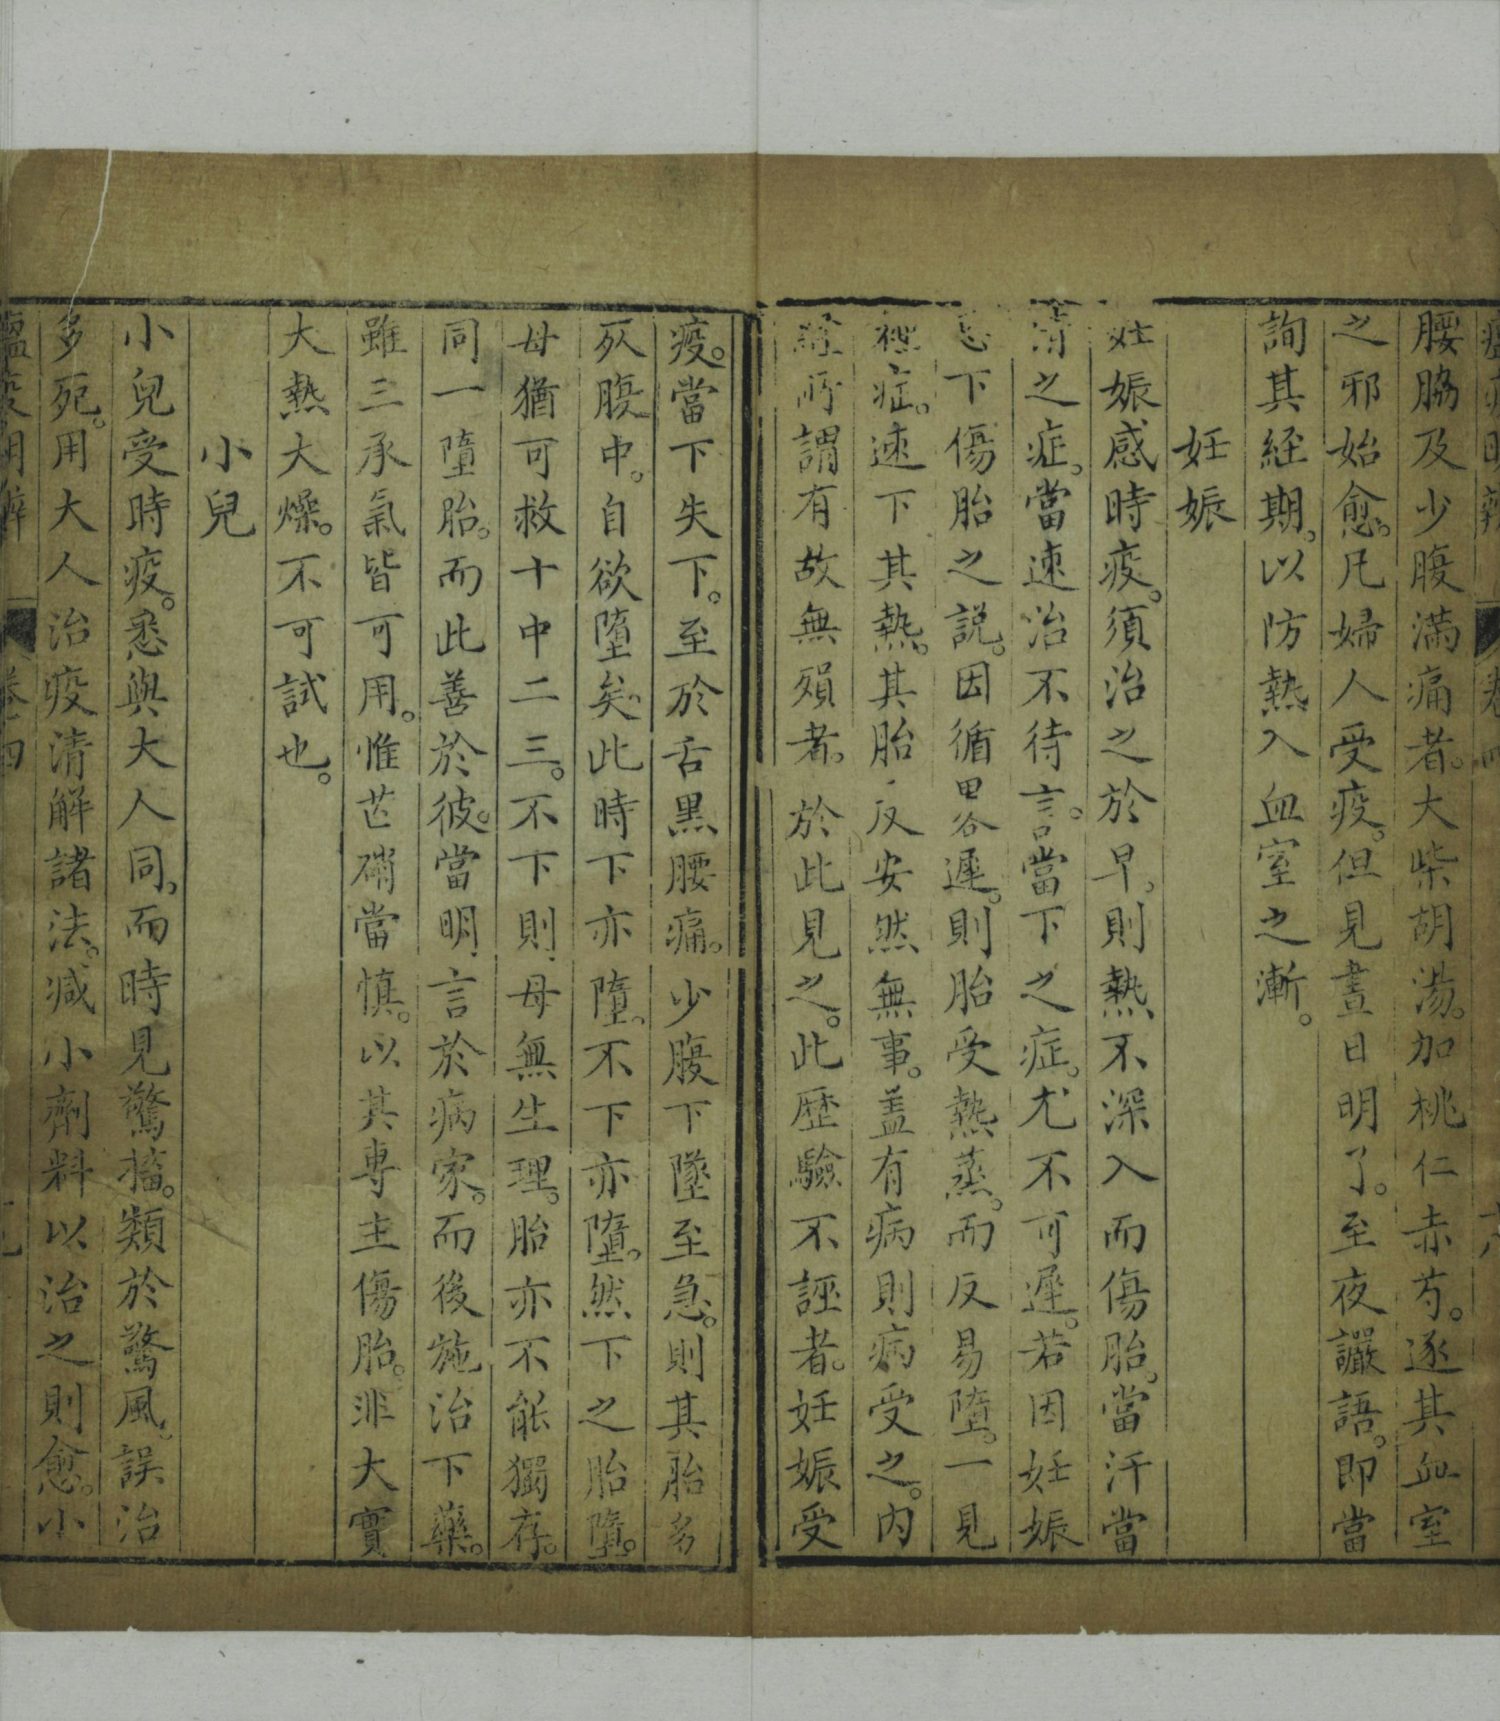 瘟疫明辨 卷四 十八
腰脇及少腹滿痛者。大柴胡湯。加桃仁赤芍。逐其血室
之邪始愈。凡婦人受疫。但見晝日明了。至夜讝語。即當
詢其経期。以防熱入血室之漸。
妊娠
妊娠感時疫。須治之於早。則熱不深入而傷胎。當汗當
清之症。當速治不待言。當下之症。尤不可遲。若因妊娠
忌下傷胎之說。因循遲。則胎受熱蒸。而反易墮。一見
裡症。速下其熱。其胎反安然無事。盖有病則病受之。内
經所謂有故無殞者。於此見之。此歷驗不誣者。妊娠受
疫。當下失下。至於舌黑腰痛。少腹下墜至急。則其胎多
死腹中。自欲墮矣。此時下亦墮。不下亦墮。然下之胎墮。
母猶可救十中二三。不下則母無生理。胎亦不能獨存。
同一墮胎。而此善於彼。當明言於病家。而後施治下藥。
雖三承氣皆可用。惟芒硝當慎。以其專主傷胎。非大實
大熱大燥。不可試也。
小兒
小兒受時疫。悉與大人同。而時見驚搐。類於驚風。誤治
多死。用大人治疫清解諸法。减小劑料以治之則愈。小
瘟疫明辨 卷四